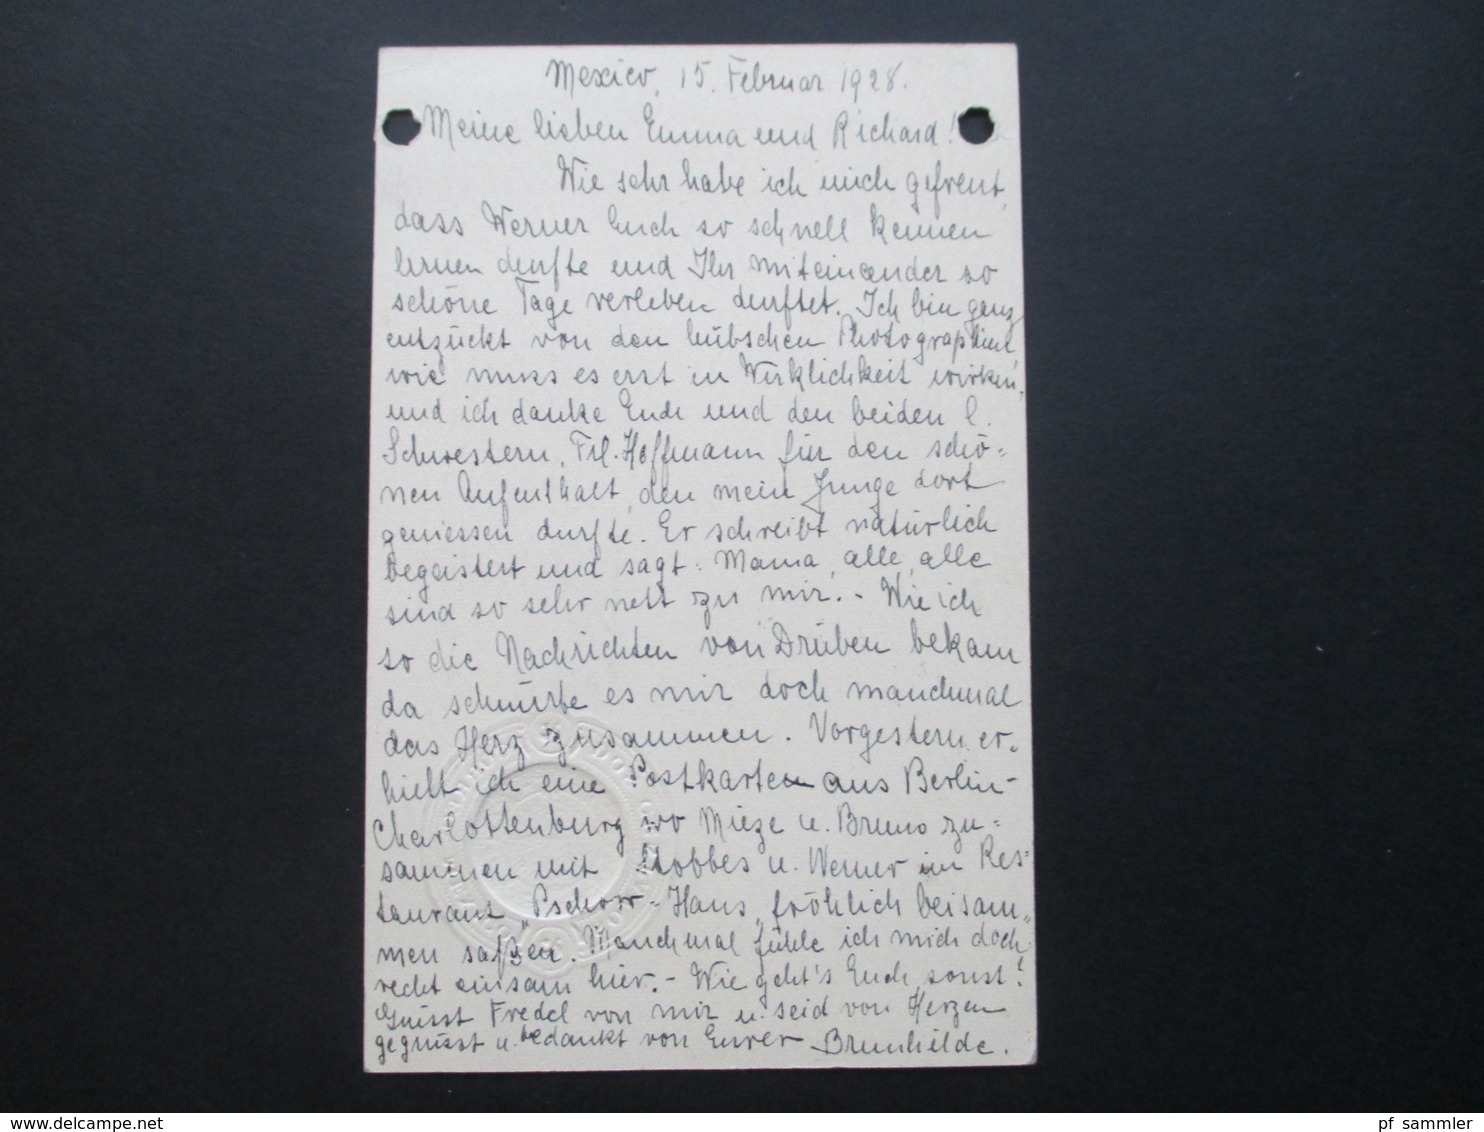 Mexico, 15. Februar 1928.
Meine lieben Emma und Richard!
Wie sehr habe ich mich gefreut,
dass Werner Euch so schnell kennen
lernen durfte und Ihr miteinander so
schöne Tage verleben durftet. Ich bin ganz
entzückt von den hübschen Photographien,
wie muss es erst in Wirklichkeit wirken,
und ich danke Euch und den beiden l.
Schwestern, Frl. Hoffmann für den schö-
nen Aufenthalt, den mein Junge dort
geniessen durfte. Er schreibt natürlich
begeistert und sagt: Mama, alle, alle
sind so sehr nett zu mir. - Wie ich
so die Nachrichten von Drüben bekam
da schnürte es mir doch manchmal
das Herz zusammen. Vorgestern er-
hielt ich eine Postkarte aus Berlin-
Charlottenburg wo Mieze u. Bruno zu-
sammen mit Stobbes u. Werner im Res-
taurant "Pschorr-Haus" fröhlich beisam-
men saßen. Manchmal fühle ich mich doch
recht einsam hier. - Wie geht's Euch sonst?
Grüsst Fredel von mir u. seid von Herzen
gegrüsst u. bedankt von Eurer Brunhilde.
www.delcampe.net
pf_sammler